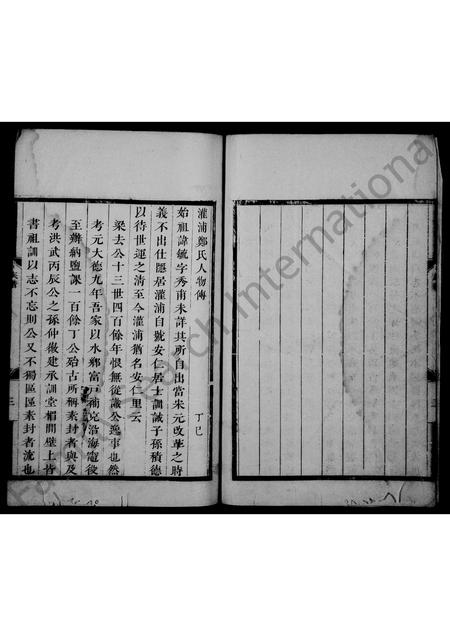 灌浦鄭氏人物傳
丁巳
始祖諱毓字秀甫未詳其所自出當宋元改革之時
義不出仕隱居灌浦自號安仁居士訓誡子孫積德
以待世運之清至今灌浦猶名安仁里云
梁去公十三世四百餘年恨無從識公逸事也然
考元大德九年吾家以水鄉富戶補充沿海竈役
至辦納鹽課一百餘丁公殆古所稱素封者與及
考洪武丙辰公之孫仲徽建承訓堂楣間壁上皆
書祖訓以志不忘則公又不獨區區素封者流也
三
FamilySearch International